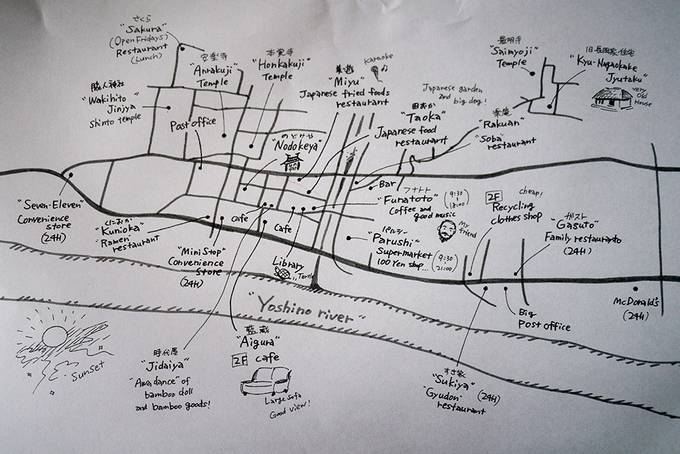 さくら
"Sakura"
(Open Fridays)
Restaurant
(Lunch)
安楽寺
"Anrakuji"
Temple
本覚寺
"Honkakuji"
Temple
"Miyu"
Japanese fried foods
restaurant
karaoke
Japanese garden
and big dog!
"Taoka"
Japanese food
restaurant
最明寺
"Saimyoji"
Temple
旧長岡家住宅
"Kyu-Nagaokake
Jyutaku"
very
Old
House
脇人神社
"Wakihito
Jinjya
Shinto temple
Post office
のどけや
"Nodokeya"
楽庵
"Rakuan"
"Soba"
restaurant
Bar
フナトト
"Funatoto"
Coffee and
good music
(9:30
18:00)
My
friend
cheap!
2F
Recycling
clothes shop
ガスト
"Gasuto"
Family restauranto
(24H)
"Seven-Eleven"
Convenience
store
(24H)
"Kunioka"
"Ramen"
restaurant
cafe
cafe
"MiniStop"
Convenience
Store
(24H)
Library
"Parushi"
Supermarket
100 Yen shop...
(9:30
21:00)
"Yoshino river"
McDonald's
(24H)
Big
Post office
Sunset
時代屋
"Jidaiya"
"Awa dance" of
bamboo doll
and bamboo goods!
藍蔵
"Aigura"
2F cafe
Large sofa
Good view!
すき家
"Sukiya" (24H)
"Gyudon"
restaurant